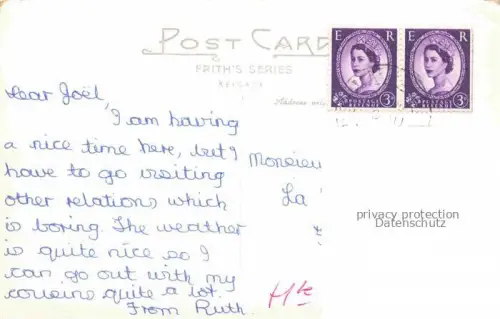 POST CARD
FRITH'S SERIES
REIGATE
Address only
E R E R
POSTAGE REVENUE 3D POSTAGE REVENUE 3D
Dear Joël,
I am having
a nice time here, but I
have to go visiting
other relations which
is boring. The weather
is quite nice so I
can go out with my
cousins quite a lot.
From Ruth.
Monsieu
La
privacy protection
Datenschutz
Hte